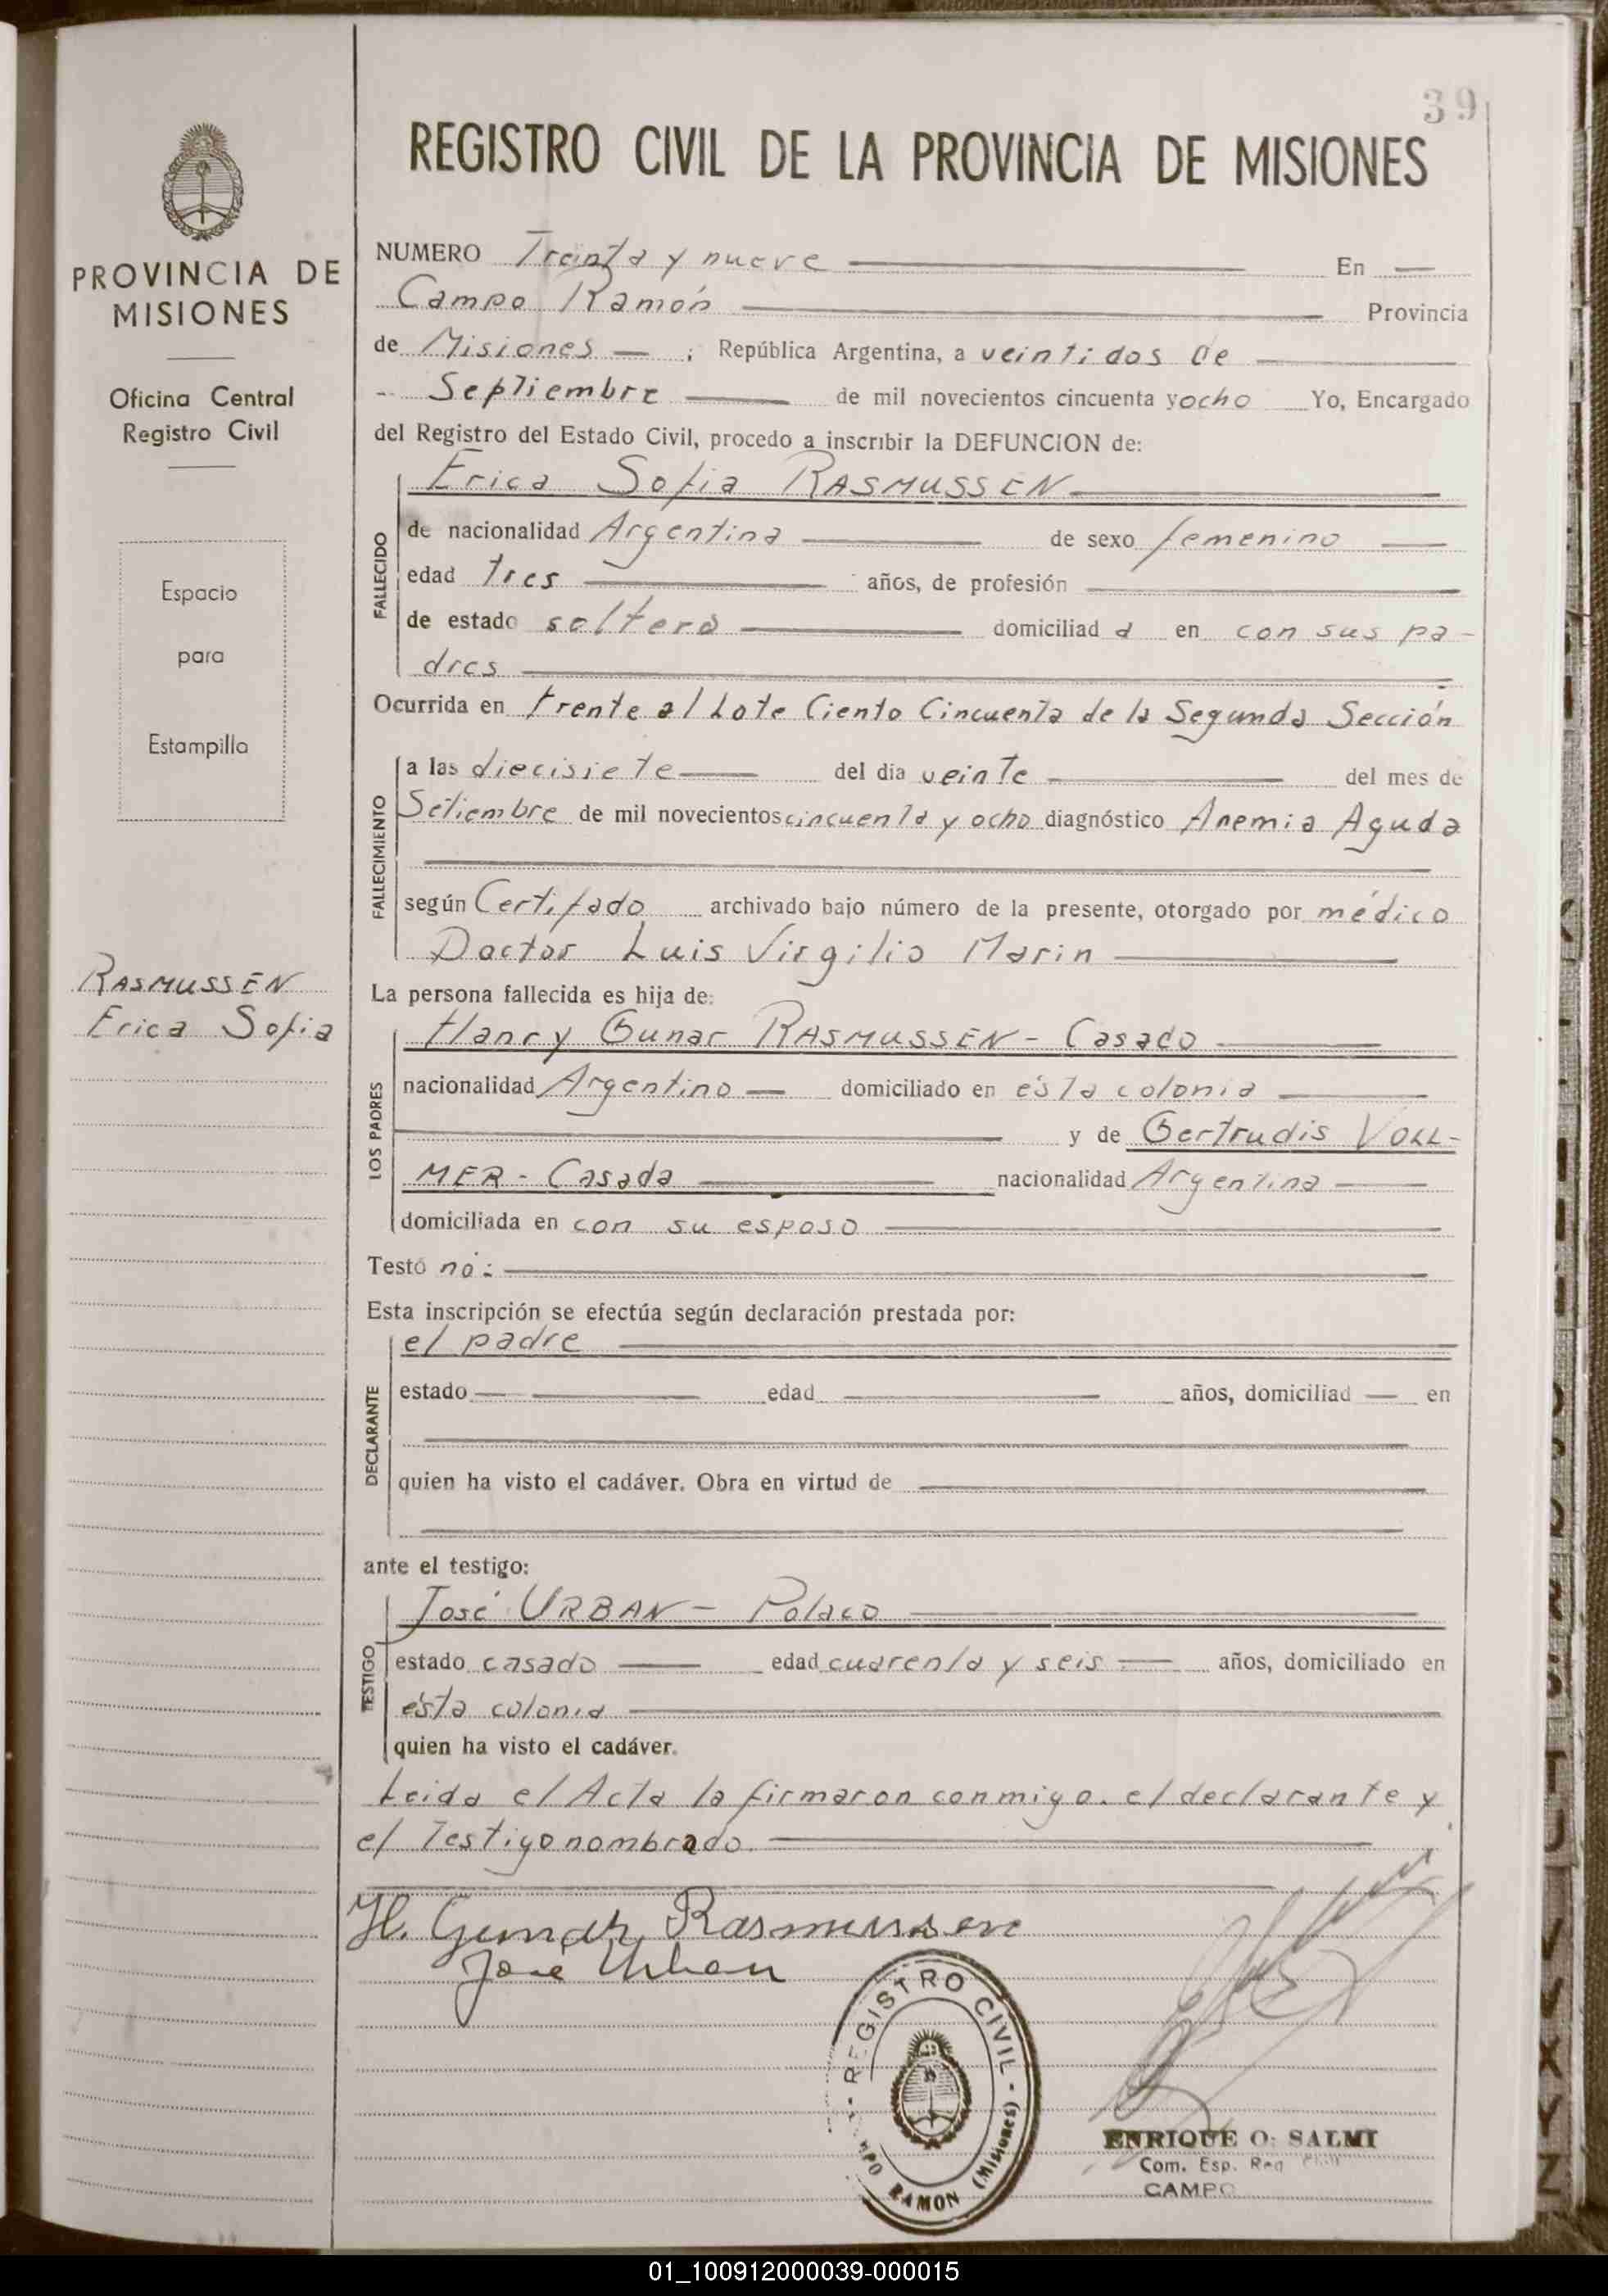 39
REGISTRO CIVIL DE LA PROVINCIA DE MISIONES
PROVINCIA DE
MISIONES
Oficina Central
Registro Civil
Espacio
para
Estampilla
RASMUSSEN
Erica Sofia
NUMERO Treinta y nueve En
Campo Ramón Provincia
de Misiones ; República Argentina, a veintidos de
Septiembre de mil novecientos cincuenta y ocho Yo, Encargado
del Registro del Estado Civil, procedo a inscribir la DEFUNCION de:
FALLECIDO
Erica Sofia RASMUSSEN
de nacionalidad Argentina de sexo femenino
edad tres años, de profesión
de estado soltera domiciliad a en con sus pa-
dres
Ocurrida en Frente al Lote Ciento Cincuenta de la Segunda Sección
FALLECIMIENTO
a las diecisiete del dia veinte del mes de
Setiembre de mil novecientos cincuenta y ocho diagnóstico Anemia Aguda
según Certifado archivado bajo número de la presente, otorgado por médico
Doctor Luis Virgilio Marin
La persona fallecida es hija de:
LOS PADRES
Hanry Gunar RASMUSSEN - Casado
nacionalidad Argentino domiciliado en ésta colonia
y de Gertrudis VOLL-
MER - Casada nacionalidad Argentina
domiciliada en con su esposo
Testó no:
Esta inscripción se efectúa según declaración prestada por:
DECLARANTE
el padre
estado edad años, domiciliad en
quien ha visto el cadáver. Obra en virtud de
ante el testigo:
TESTIGO
José URBAN - Polaco
estado casado edad cuarenta y seis años, domiciliado en
ésta colonia
quien ha visto el cadáver.
Leida el Acta la firmaron conmigo. el declarante y
el Testigo nombrado.
H. Gunar Rasmussen
José Urban
REGISTRO CIVIL - (Misiones)
RAMON
ENRIQUE O. SALMI
Com. Esp. Reg
CAMPO
01_100912000039-000015